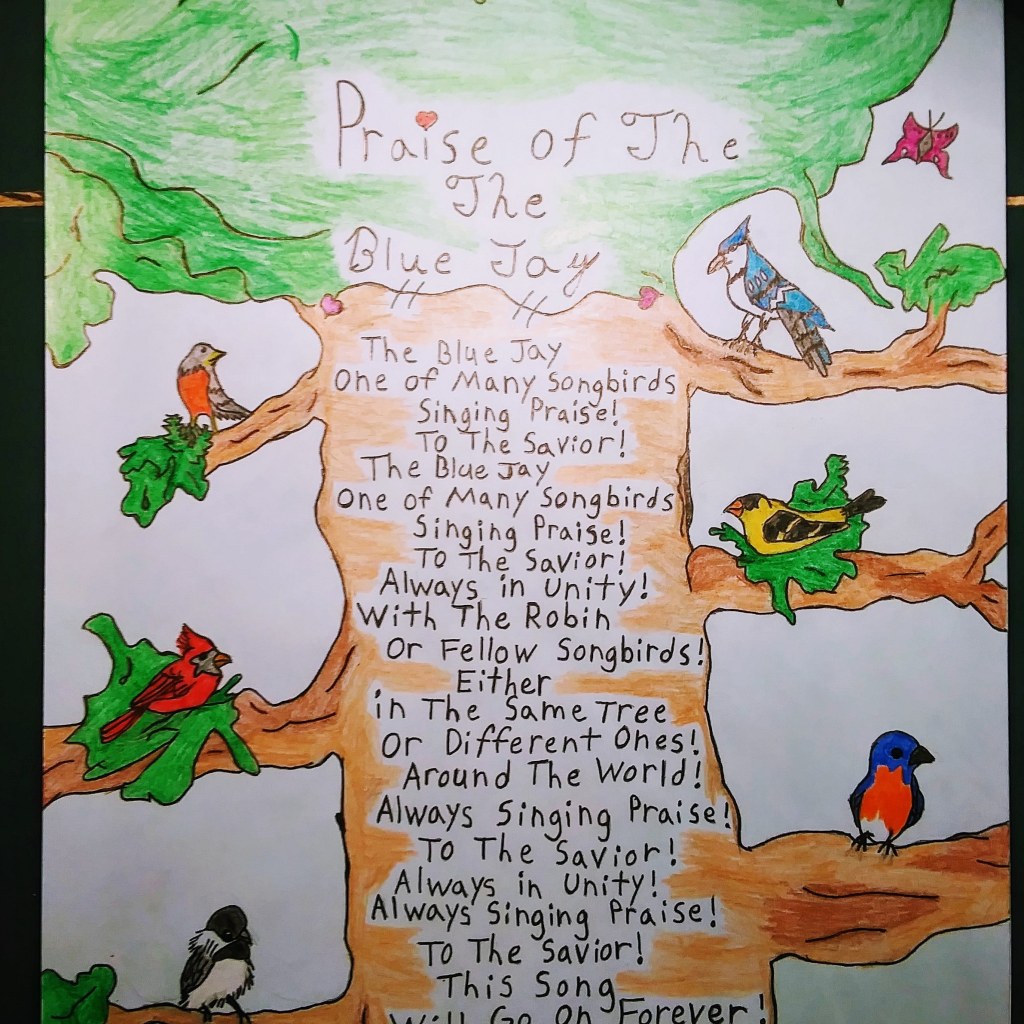 Praise of The
The
Blue Jay
The Blue Jay
One of Many Songbirds
Singing Praise!
To The Savior!
The Blue Jay
One of Many Songbirds
Singing Praise!
To The Savior!
Always in Unity!
With The Robin
Or Fellow Songbirds!
Either
in The Same Tree
Or Different Ones!
Around The World!
Always Singing Praise!
To The Savior!
Always in Unity!
Always Singing Praise!
To The Savior!
This Song
Will Go On Forever!